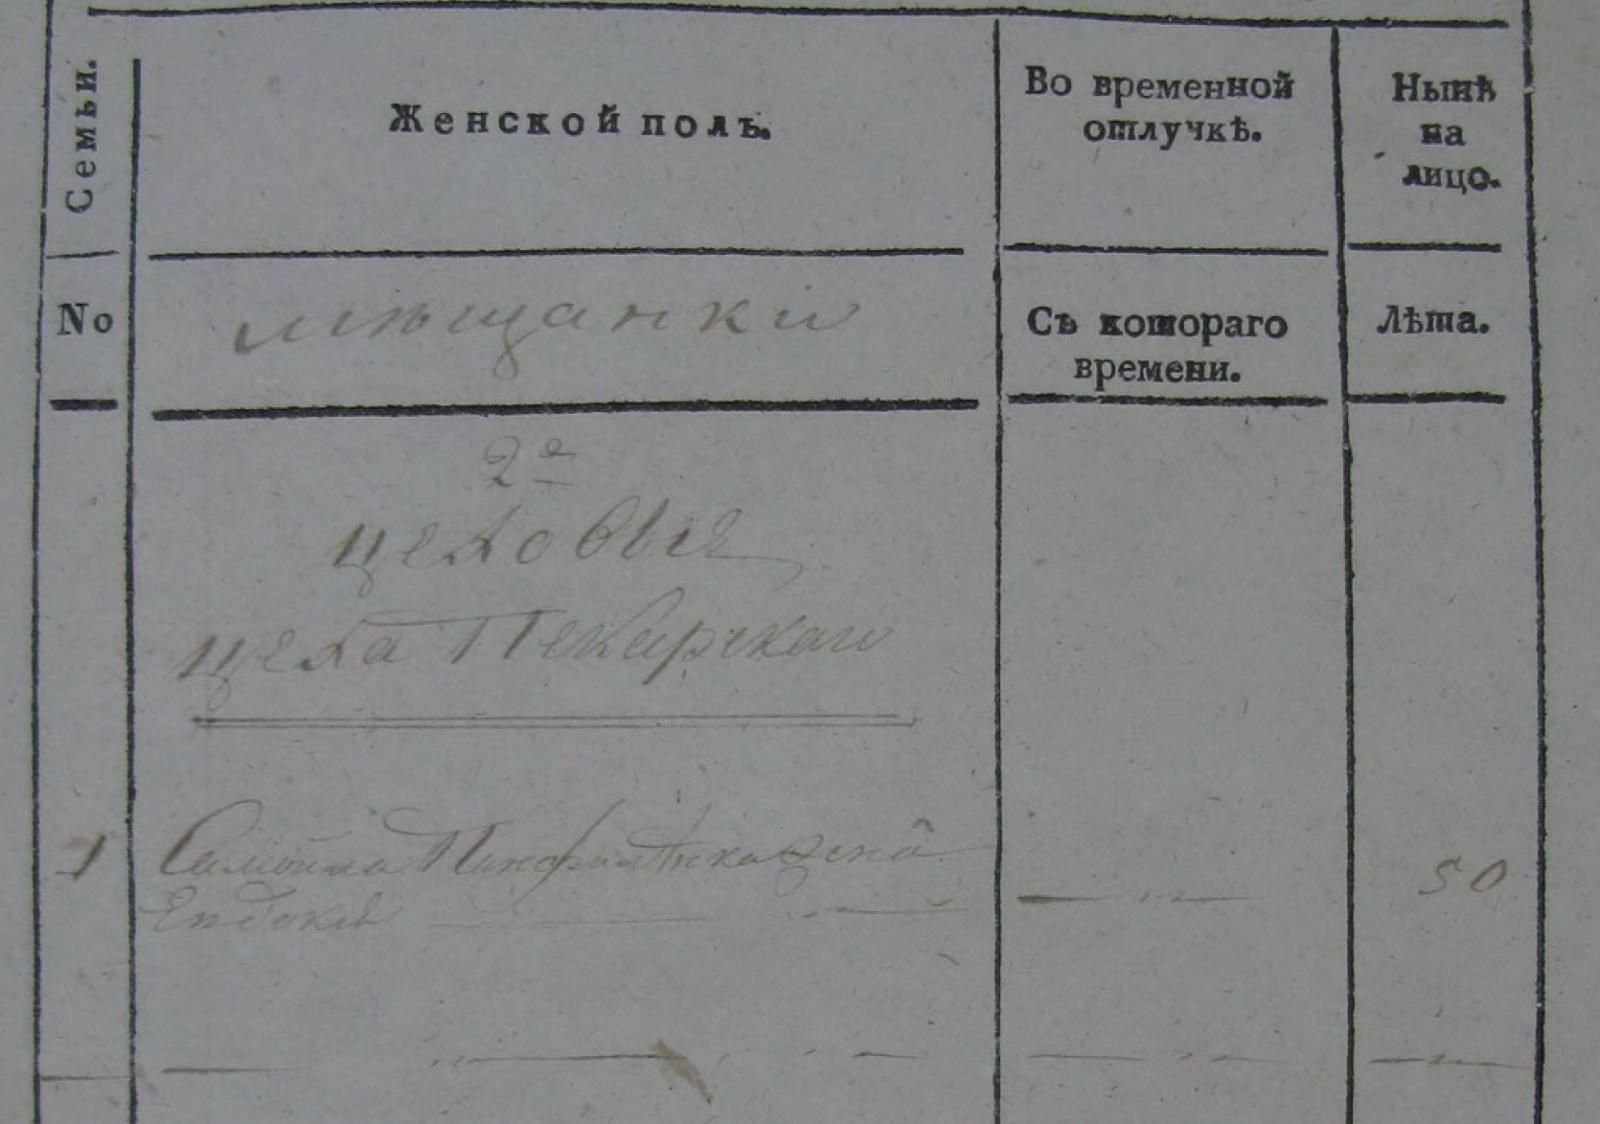 Семьи.
Женской полъ.
Во временной
отлучкѣ.
Нынѣ
на
лицо.
No
мѣщанки
Съ котораго
времени.
Лѣта.
2е
цеховые
цеха Пекарскаго
1 Самойла жена
Евдокія 50